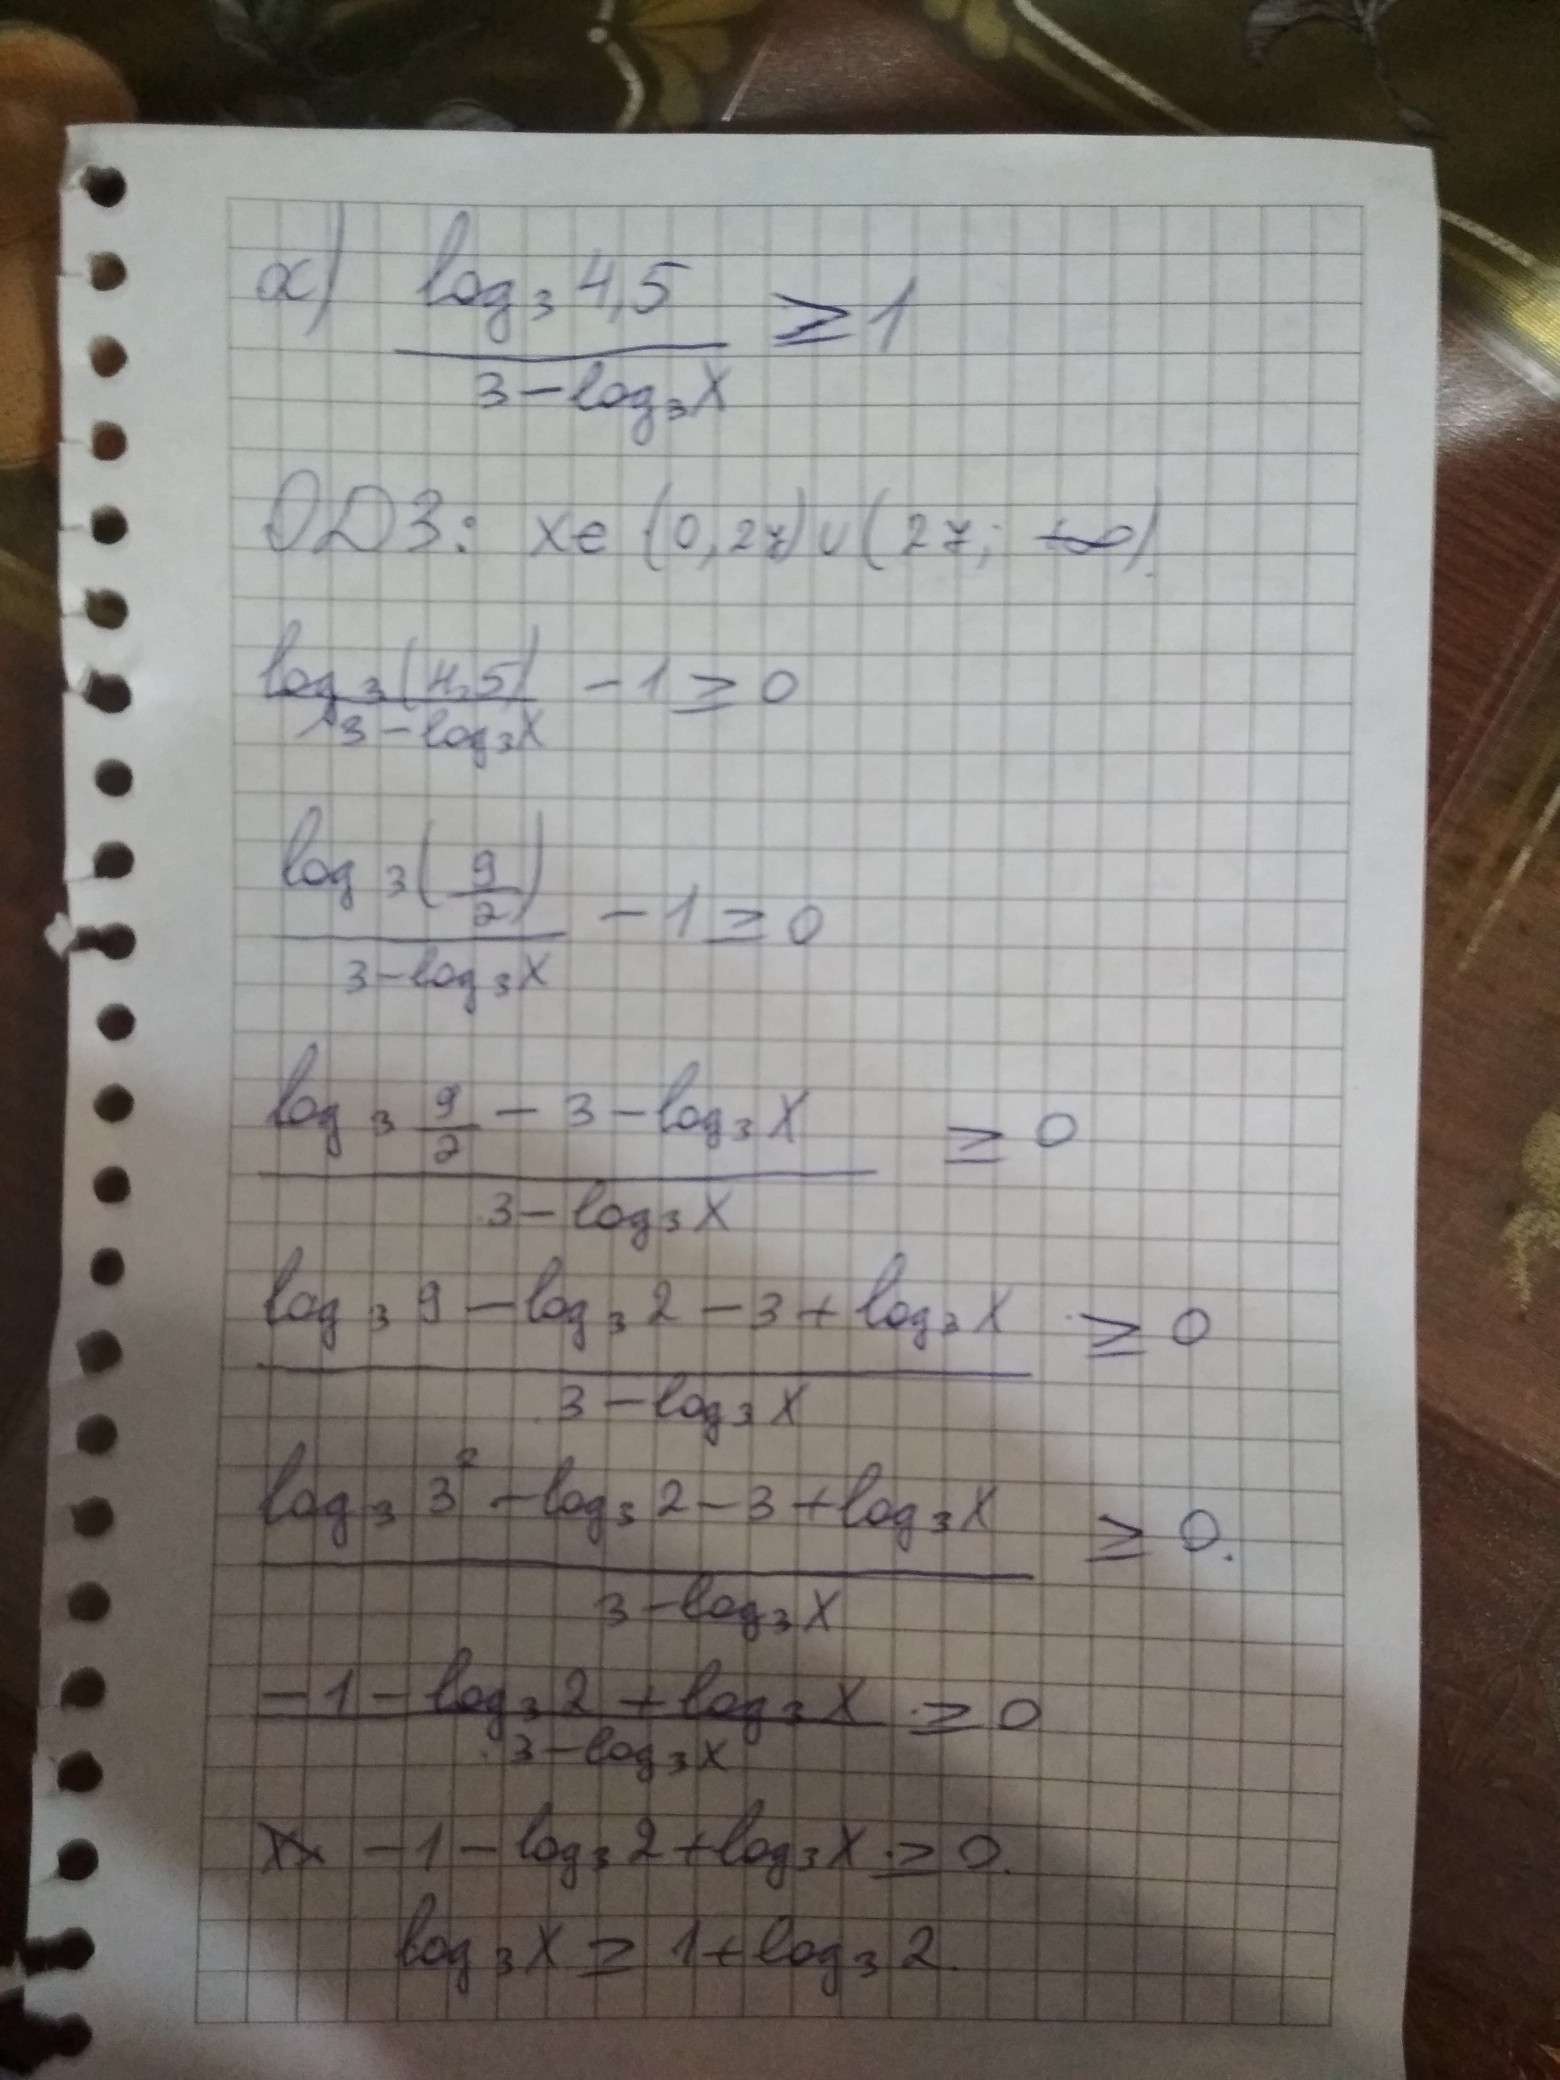 a) log₃ 4,5 / 3 - log₃x ≥ 1
ОДЗ: x ∈ (0, 27) ∪ (27; +∞).
log₃(4,5) / 3 - log₃x - 1 ≥ 0
log₃(9/2) / 3 - log₃x - 1 ≥ 0
log₃ 9/2 - 3 - log₃x / 3 - log₃x ≥ 0
log₃ 9 - log₃ 2 - 3 + log₃x / 3 - log₃x ≥ 0
log₃ 3² - log₃ 2 - 3 + log₃x / 3 - log₃x ≥ 0.
-1 - log₃2 + log₃x / 3 - log₃x ≥ 0
-1 - log₃2 + log₃x ≥ 0.
log₃x ≥ 1 + log₃ 2.